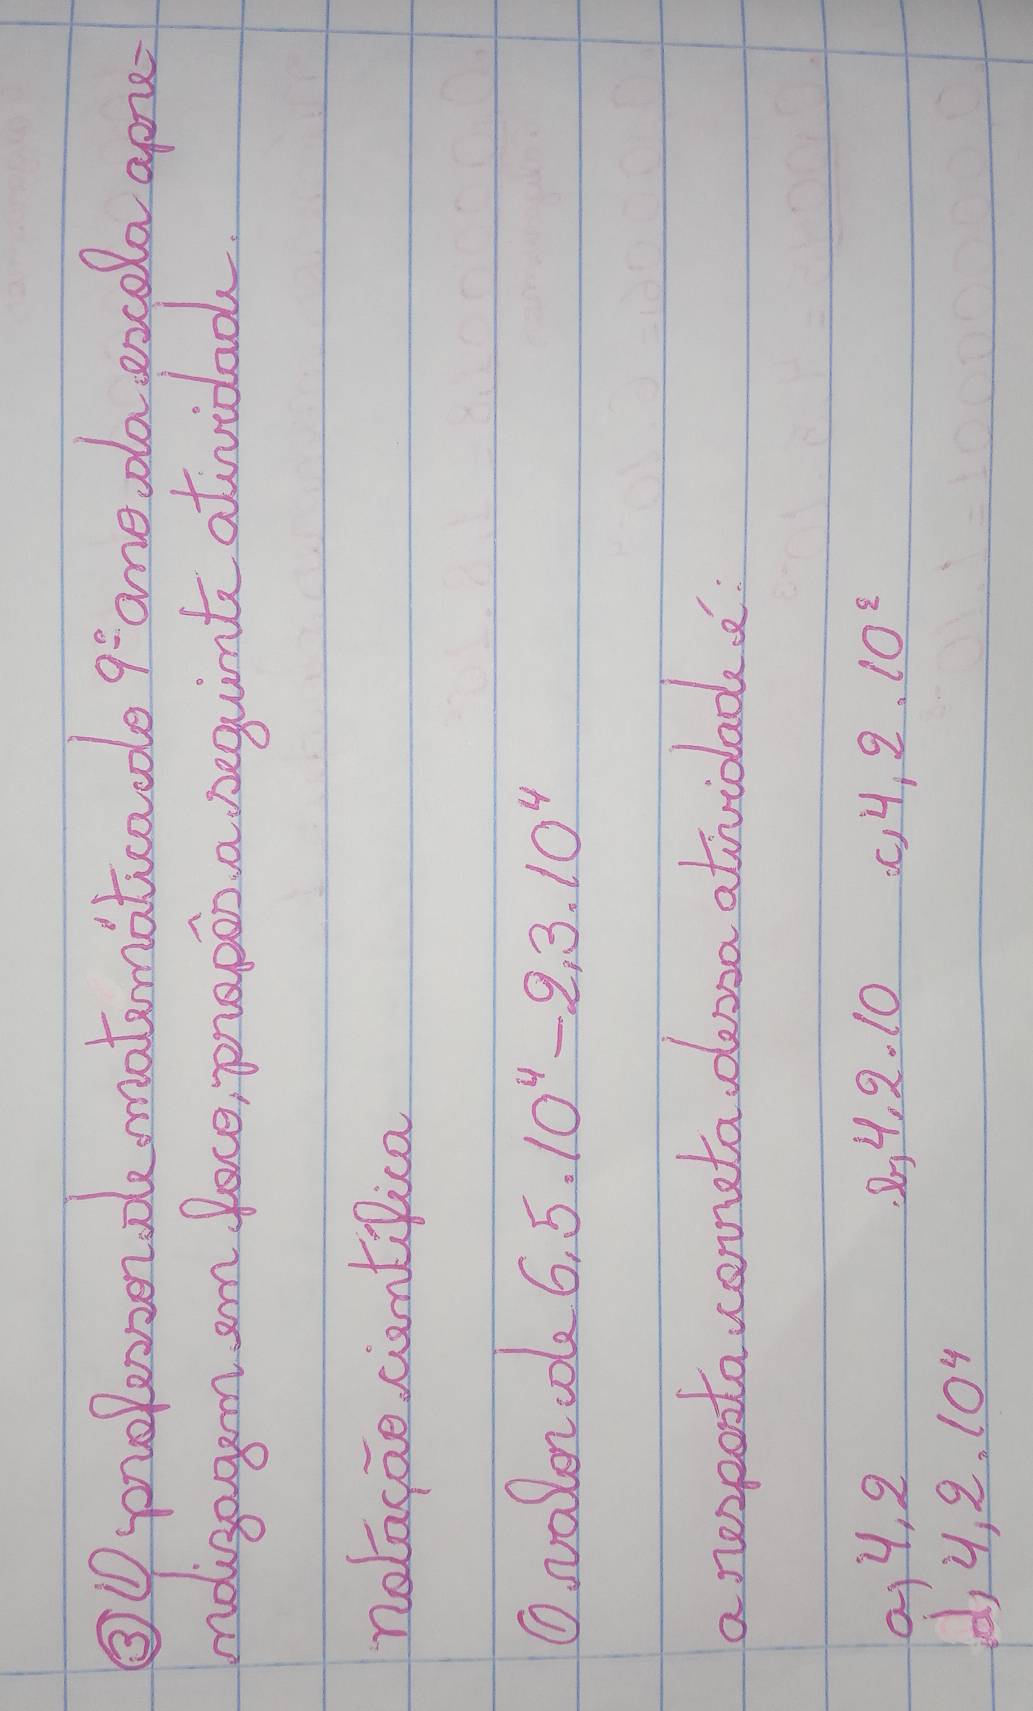 ③ O professor de matemática do 9º ano da escola apre-
ndizagem em foco, propôs a seguinte atividade.
notação científica
O valor de 6,5 . 10⁴ - 2,3 . 10⁴
a resposta correta dessa atividade é:
a) 4,2 b) 4,2 . 10 c) 4,2 . 10²
d) 4,2 . 10⁴